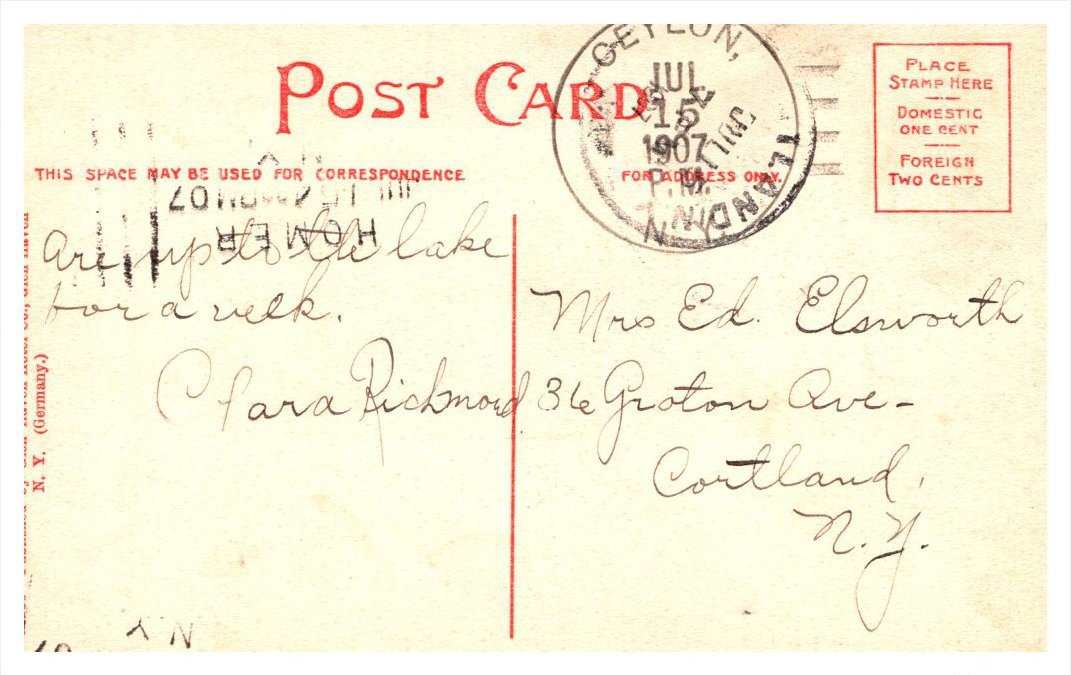 POST CARD
CEYLON,
JUL
15
1907
P.M.
N.Y.
PLACE
STAMP HERE
DOMESTIC
ONE CENT
FOREIGN
TWO CENTS
THIS SPACE MAY BE USED FOR CORRESPONDENCE
FOR ADDRESS ONLY.
N.Y.
HOMER
Are up to the lake
for a week.
Clara Richmond
Mrs Ed. Elsworth
36 Groton Ave-
Cortland,
N.Y.
N. Y. (Germany.)
N.Y.